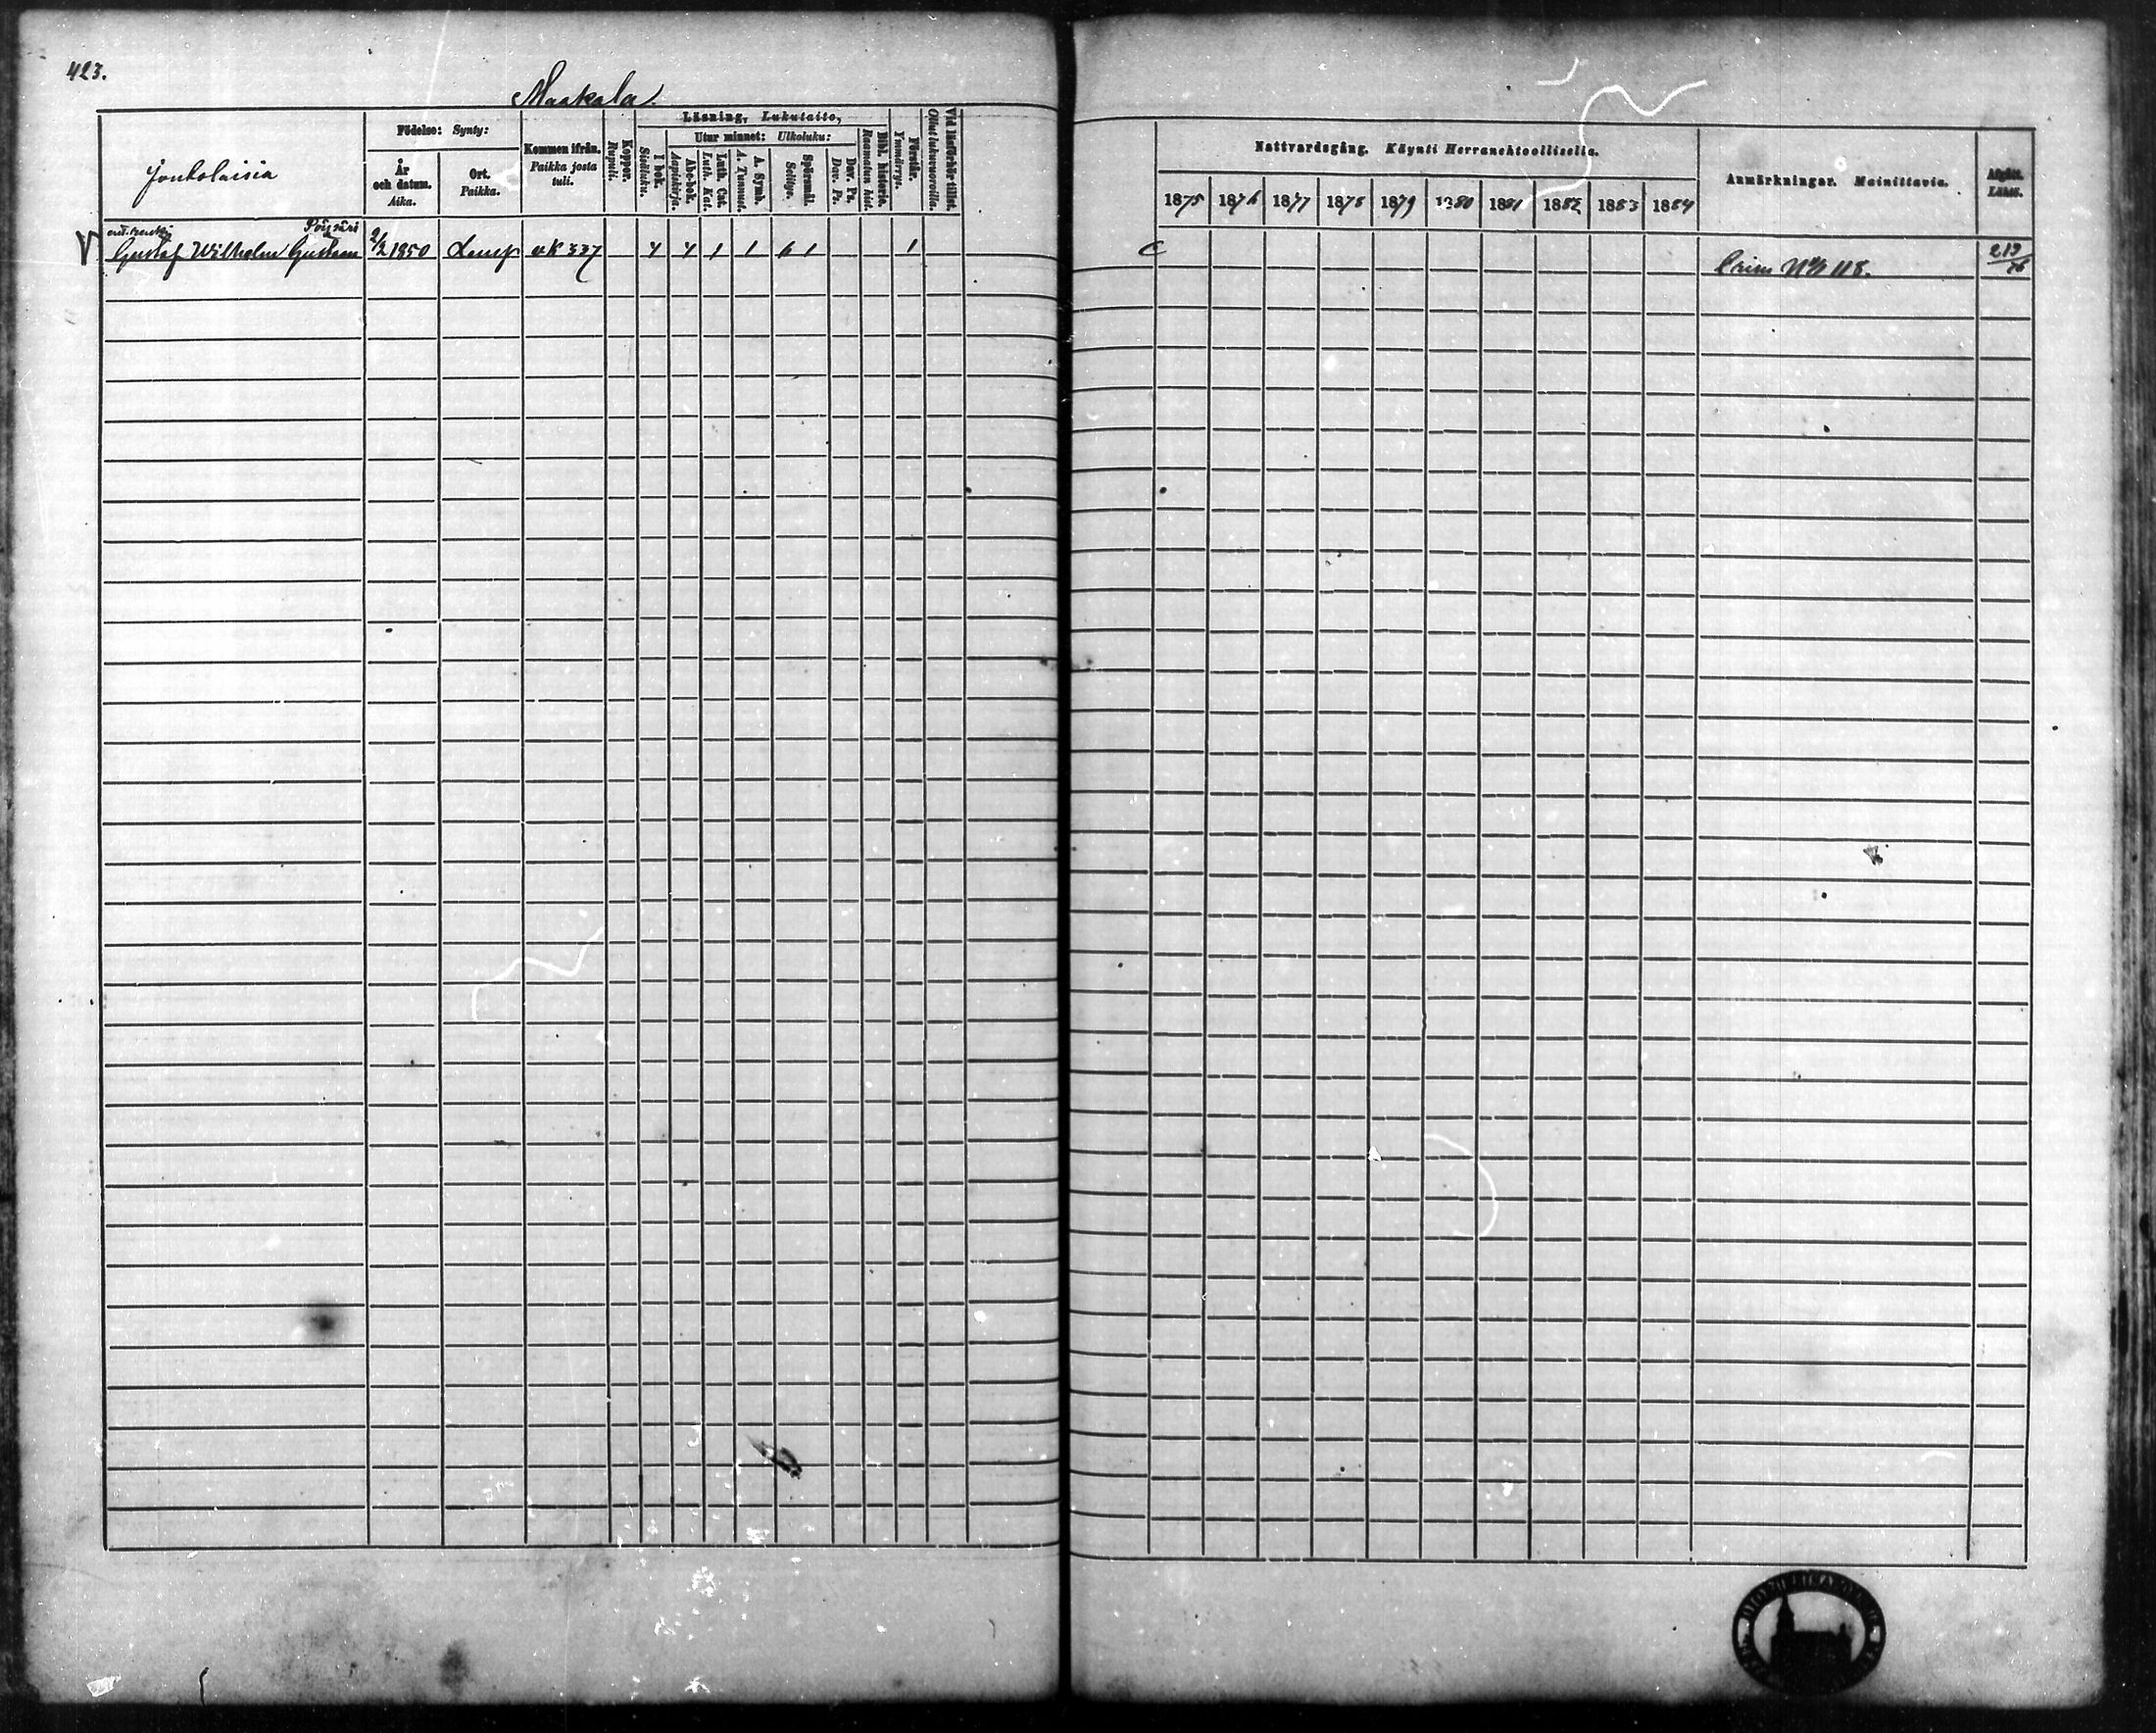 423.
Maakala
Läsning, Lukutaito,
Födelse: Synty:
Utur minnet: Ulkoluku:
Jonkolaisia
År och datum. Aika.
Ort. Paikka.
Kommen ifrån. Paikka josta tuli.
Koppor. Rupuli.
I bok. Sisäluku.
Abc-bok. Aapiskirja.
Luth. Cat. Luth. Kat.
A. Symb. A. Tunnust.
Spörsmål. Selitys.
Dav. Ps. Dav. Ps.
Bibl. historia. Raamatun hist.
Förstår. Ymmärrys.
Vid läsförhör tillst. Ollut lukuvuoroilla.
Nattvardsgång. Käynti Herranehtoollisella.
Anmärkningar. Mainittavia.
Afgått. Lähtö.
1875 1876 1877 1878 1879 1880 1881 1882 1883 1884
Gustaf Wilhelm Gustaan 2/2 1850 Lemp vK 337 4 4 1 1 6 1 1
C
Crim No 118. 219/76